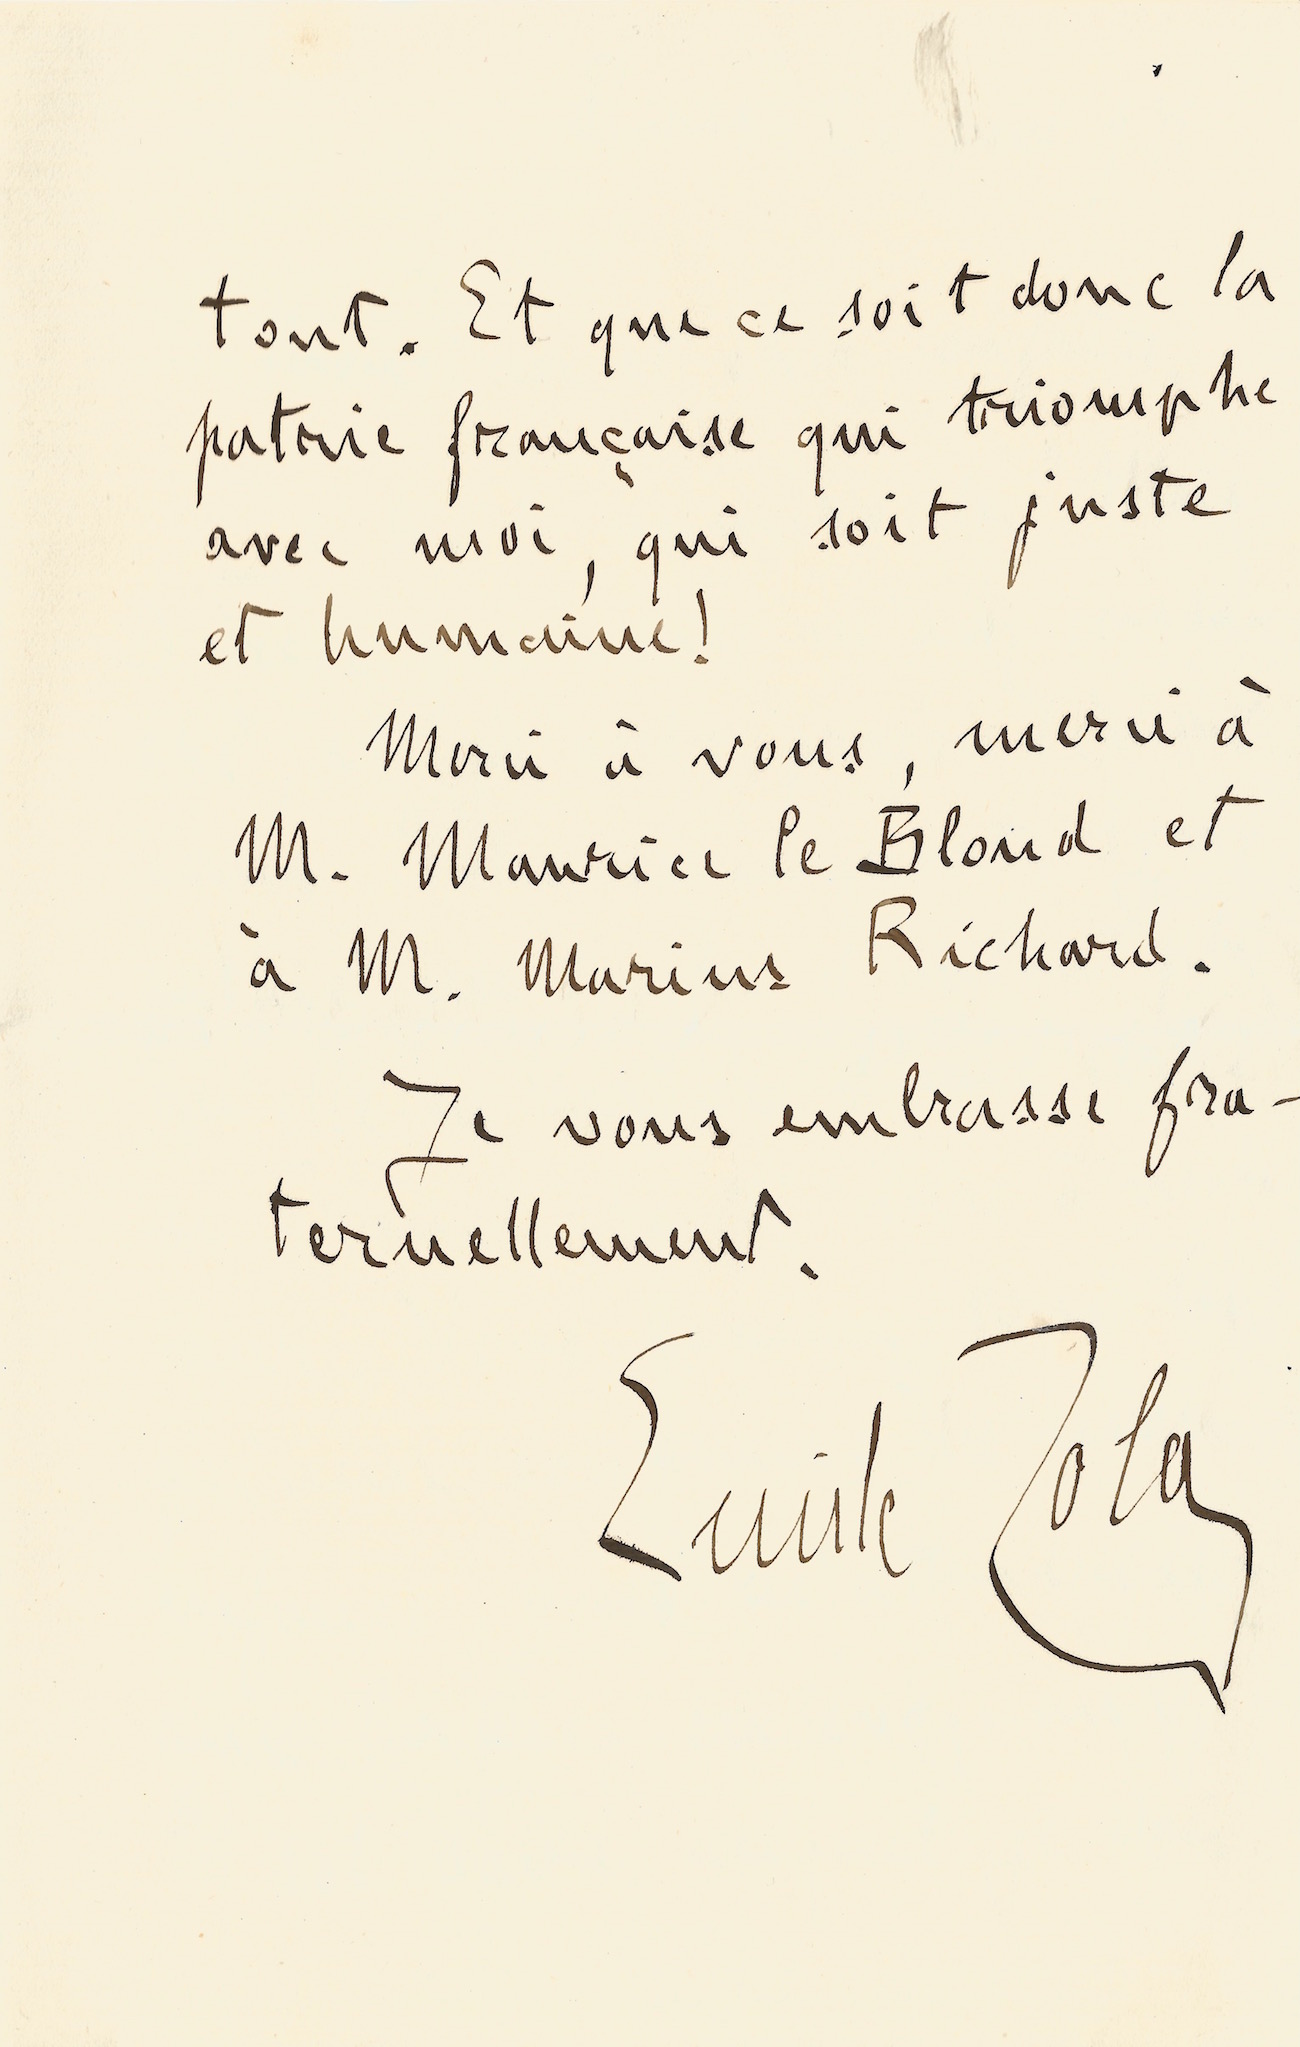 tout. Et que ce soit donc la
patrie française qui triomphe
avec moi, qui soit juste
et humaine!
Merci à vous, merci à
M. Maurice le Blond et
à M. Marius Richard.
Je vous embrasse fra-
ternellement.
Emile Zola